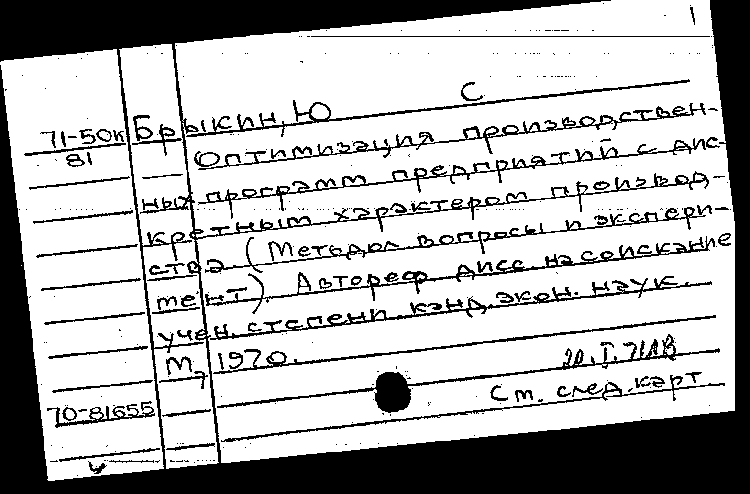 1
71-50к Брыкин, Ю С
81 Оптимизация производствен-
ных программ предприятий с дис-
кретным характером производ-
ства. (Методол вопросы и экспери-
мент). Автореф дисс. на соискание
учен. степени канд. экон. наук.
М, 1970.
70-81655 См. след. карт